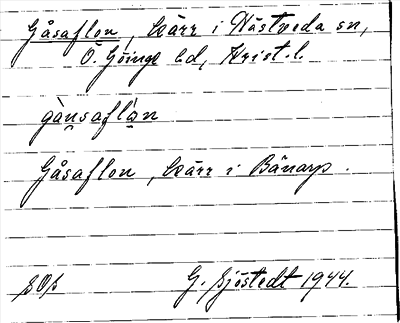 Gåsaflon, kärr i Hästveda sn,
Ö. Göinge hd, Krist. l.
Gåsaflon, kärr i Bänarp.
G. Sjöstedt 1944.